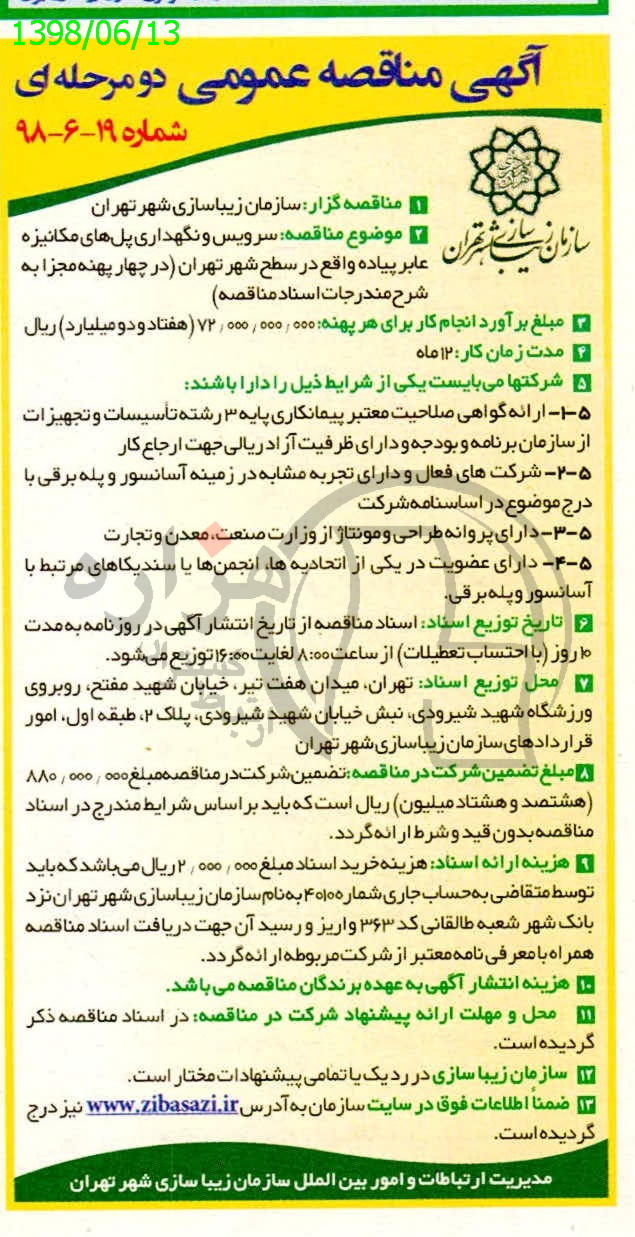 1398/06/13
آگهی مناقصه عمومی دو مرحله ای
شماره ۱۹-۶-۹۸
سازمان زیباسازی شهر تهران
۱ مناقصه گزار: سازمان زیباسازی شهر تهران
۲ موضوع مناقصه: سرویس و نگهداری پل‌های مکانیزه
عابر پیاده واقع در سطح شهر تهران (در چهار پهنه مجزا به
شرح مندرجات اسناد مناقصه)
۳ مبلغ برآورد انجام کار برای هر پهنه: ۷۲٫۰۰۰٫۰۰۰٫۰۰۰ (هفتاد و دو میلیارد) ریال
۴ مدت زمان کار: ۱۲ ماه
۵ شرکتها می‌بایست یکی از شرایط ذیل را دارا باشند:
۵-۱- ارائه گواهی صلاحیت معتبر پیمانکاری پایه ۳ رشته تأسیسات و تجهیزات
از سازمان برنامه و بودجه و دارای ظرفیت آزاد ریالی جهت ارجاع کار
۵-۲- شرکت های فعال و دارای تجربه مشابه در زمینه آسانسور و پله برقی با
درج موضوع در اساسنامه شرکت
۵-۳- دارای پروانه طراحی و مونتاژ از وزارت صنعت، معدن و تجارت
۵-۴- دارای عضویت در یکی از اتحادیه ها، انجمن‌ها یا سندیکاهای مرتبط با
آسانسور و پله برقی.
۶ تاریخ توزیع اسناد: اسناد مناقصه از تاریخ انتشار آگهی در روزنامه به مدت
۱۰ روز (با احتساب تعطیلات) از ساعت ۸:۰۰ لغایت ۱۶:۰۰ توزیع می‌شود.
۷ محل توزیع اسناد: تهران، میدان هفت تیر، خیابان شهید مفتح، روبروی
ورزشگاه شهید شیرودی، نبش خیابان شهید شیرودی، پلاک ۲، طبقه اول، امور
قراردادهای سازمان زیباسازی شهر تهران
۸ مبلغ تضمین شرکت در مناقصه: تضمین شرکت در مناقصه مبلغ ۸۸۰٫۰۰۰٫۰۰۰
(هشتصد و هشتاد میلیون) ریال است که باید بر اساس شرایط مندرج در اسناد
مناقصه بدون قید و شرط ارائه گردد.
۹ هزینه ارائه اسناد: هزینه خرید اسناد مبلغ ۲٫۰۰۰٫۰۰۰ ریال می‌باشد که باید
توسط متقاضی به حساب جاری شماره ۴۰۱۰۰ به نام سازمان زیباسازی شهر تهران نزد
بانک شهر شعبه طالقانی کد ۳۶۳ واریز و رسید آن جهت دریافت اسناد مناقصه
همراه با معرفی نامه معتبر از شرکت مربوطه ارائه گردد.
۱۰ هزینه انتشار آگهی به عهده برندگان مناقصه می باشد.
۱۱ محل و مهلت ارائه پیشنهاد شرکت در مناقصه: در اسناد مناقصه ذکر
گردیده است.
۱۲ سازمان زیبا سازی در رد یک یا تمامی پیشنهادات مختار است.
۱۳ ضمناً اطلاعات فوق در سایت سازمان به آدرس www.zibasazi.ir نیز درج
گردیده است.
مدیریت ارتباطات و امور بین الملل سازمان زیبا سازی شهر تهران
هزاره